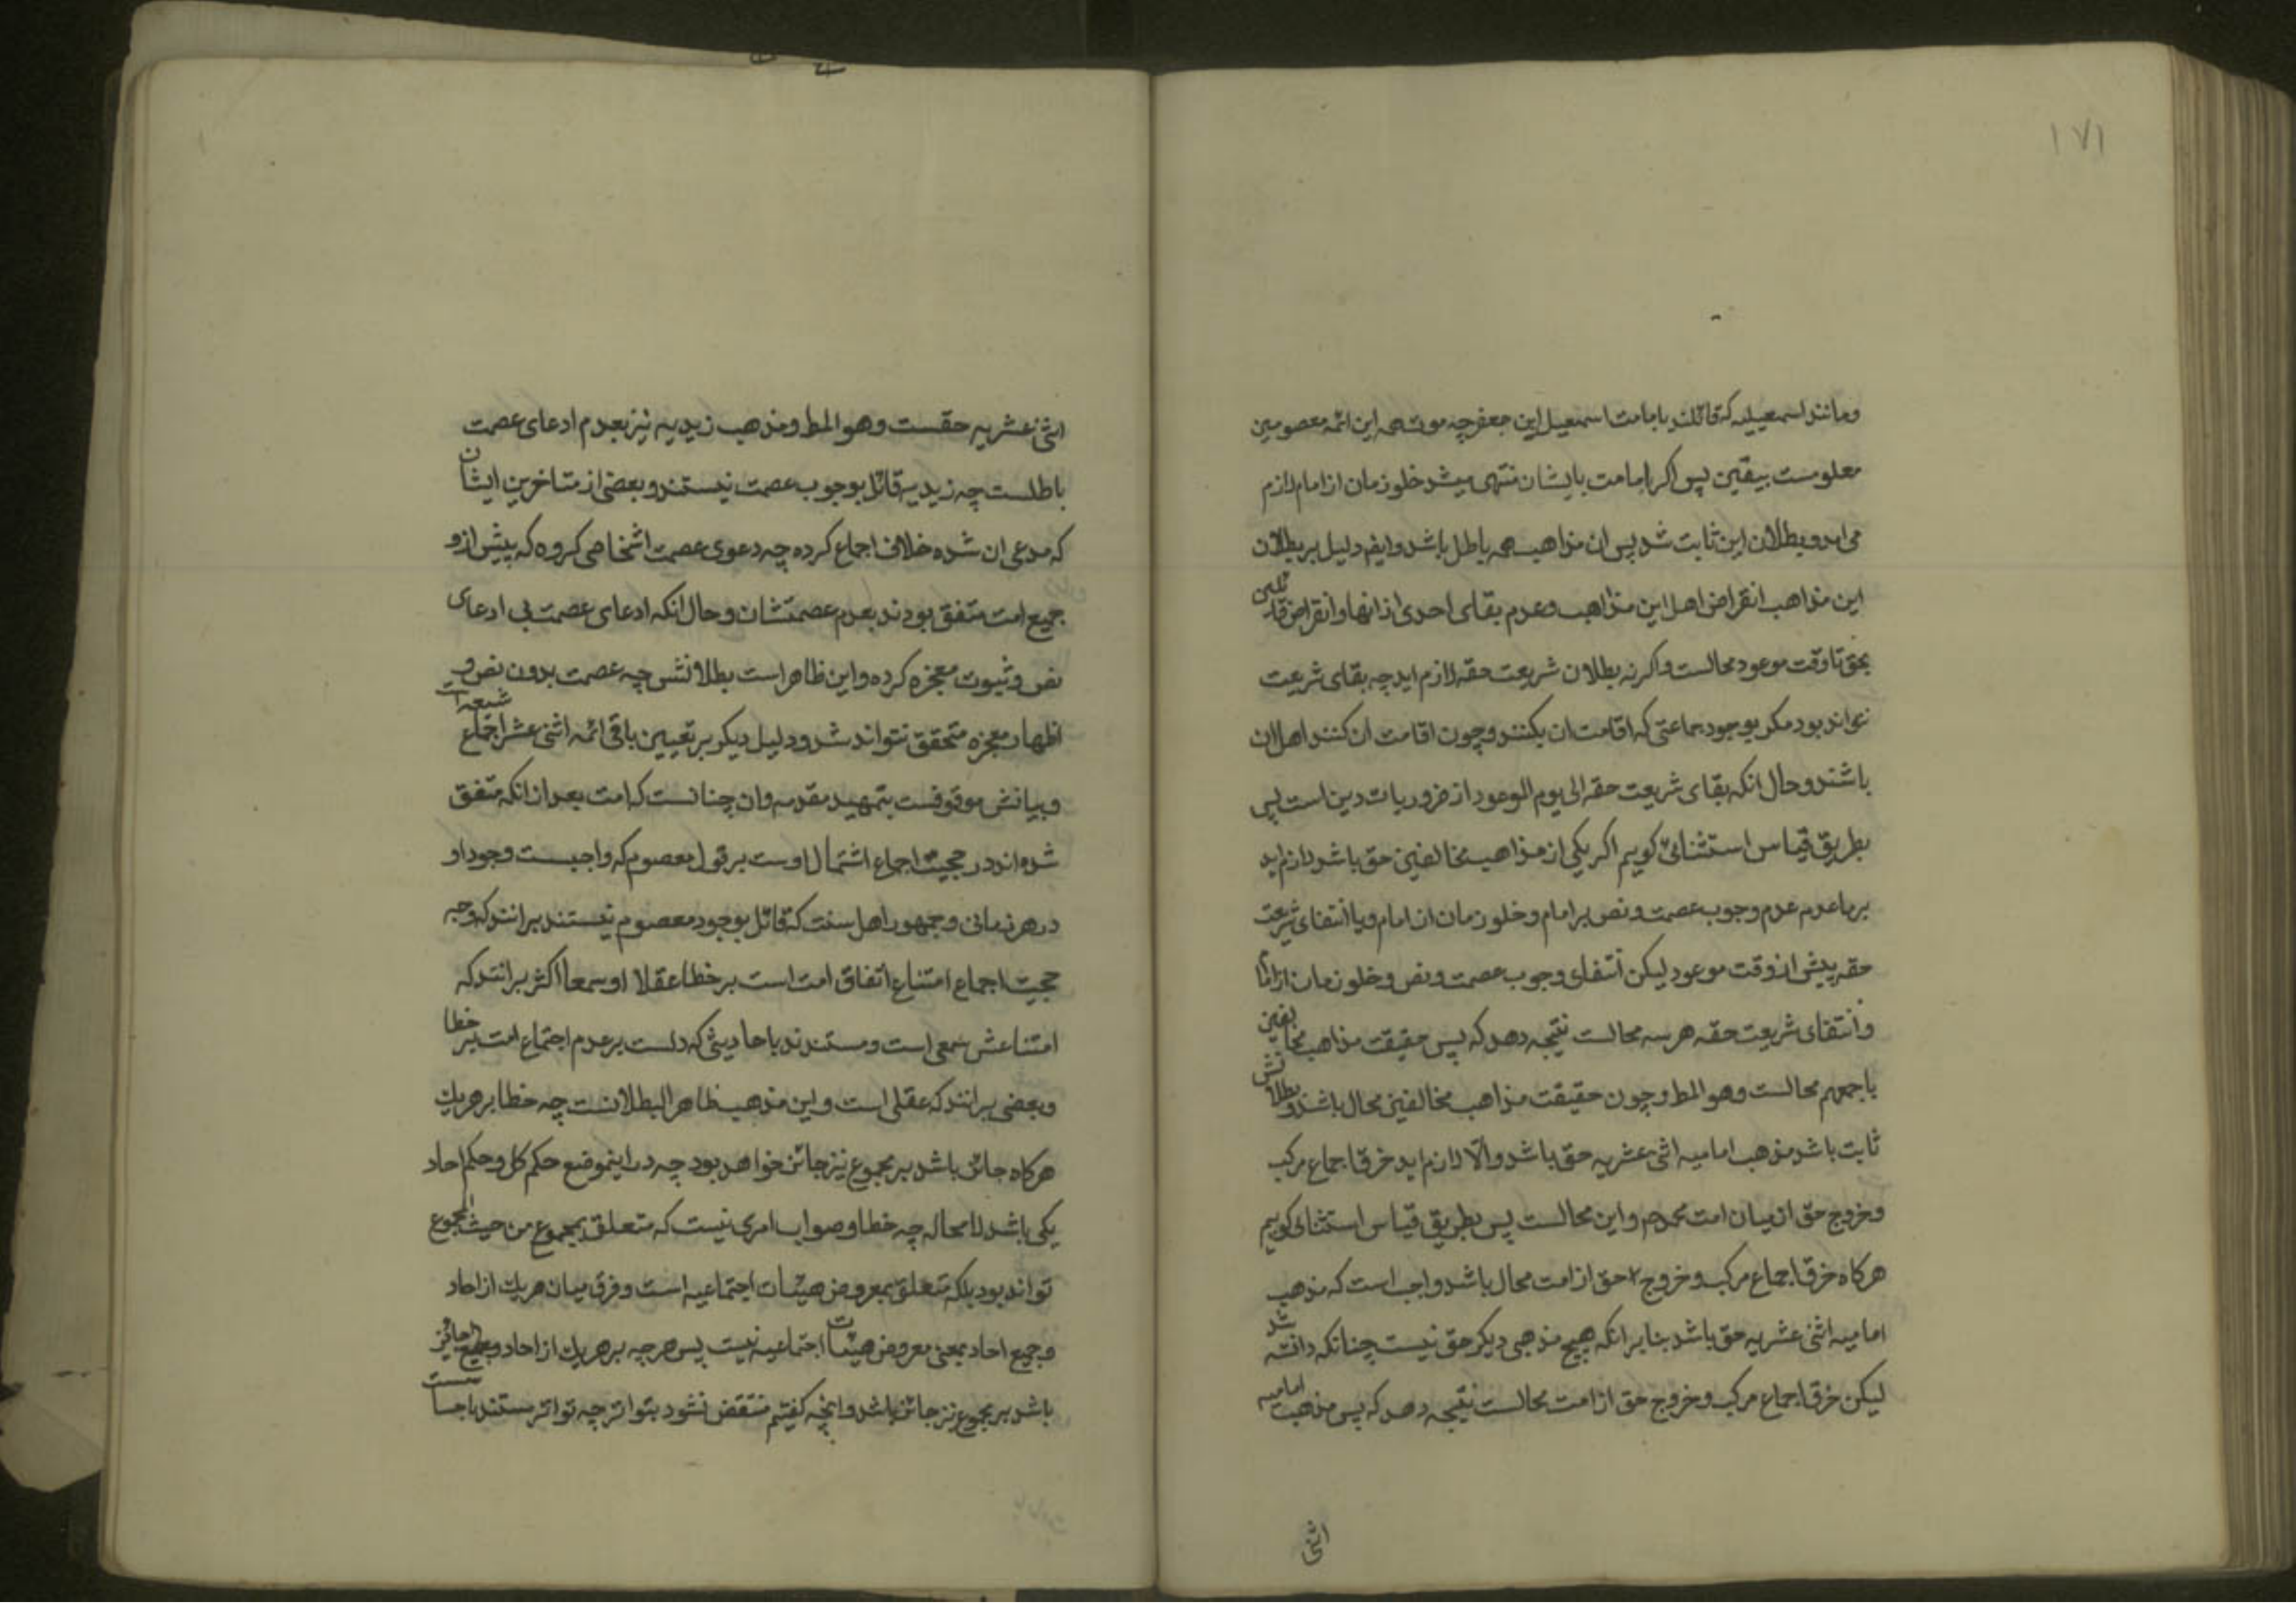 ۱۷۱
و مانند اسمعیلیه که قائلند بامامت اسمعیل ابن جعفر چه موت همه این ائمه معصومین
معلومست بیقین پس اکر امامت بایشان منتهی میشد خلو زمان از امام لازم
می امد و بطلان این ثابت شد پس ان مذاهب همه باطل باشد وایضم دلیل بر بطلان
این مذاهب انقراض اهل این مذاهب و عدم بقای احدی از انها و انقراض قائلین
بحق تا وقت موعود محالست و اکر نه بطلان شریعت حقه لازم اید چه بقای شریعت
نتواند بود مکر بوجود جماعتی که اقامت ان بکنند و چون اقامت ان کنند اهل ان
باشند و حال انکه بقای شریعت حقه الی یوم الموعود از ضروریات دین است پس
بطریق قیاس استثنائی کویم اکر یکی از مذاهب مخالفین حق باشد لازم اید
عدم وجوب عصمت و نص بر امام و خلو زمان از امام و یا انتفای شریعت
حقه پیش از وقت موعود لیکن انتفای وجوب عصمت و نص و خلو زمان از امام
و انتفای شریعت حقه هر سه محالست نتیجه دهد که پس حقیقت مذاهب مخالفین
باجمعهم محالست وهو المط و چون حقیقت مذاهب مخالفین محال باشد و بطلانش
ثابت باشد مذهب امامیه اثنی عشریه حق باشد و الّا لازم اید خرق اجماع مرکب
و خروج حق از میان امت محمد ص و این محالست پس بطریق قیاس استثنائی کویم
هرکاه خرق اجماع مرکب و خروج حق از امت محال باشد واجب است که مذهب
امامیه اثنی عشریه حق باشد بنا بر انکه هیچ مذهبی دیکر حق نیست چنانکه دانسته شد
لیکن خرق اجماع مرکب و خروج حق از امت محالست نتیجه دهد که پس مذهب امامیه
اثنی
اثنی عشریه حقست وهو المط و مذهب زیدیه نیز بعدم ادعای عصمت
باطلست چه زیدیه قائل بوجوب عصمت نیستند و بعضی از متاخرین ایشان
که مدعی ان شده خلاف اجماع کرده چه دعوی عصمت اشخاصی کروه که پیش ازو
جمیع امت متفق بودند بعدم عصمتشان و حال انکه ادعای عصمت بی ادعای
نص و ثبوت معجزه کرده و این ظاهر است بطلانش چه عصمت بدون نص و
اظهار معجزه متحقق نتواند شد و دلیل دیکر بر تعیین باقی ائمه اثنی عشر اجماع شیعه است
و بیانش موقوفست بتمهید مقدمه و ان چنانست که امت بعد از انکه متفق
شده اند در حجیت اجماع اشتمال اوست بر قول معصوم که واجبست وجود او
در هر زمانی و جمهور اهل سنت که قائل بوجود معصوم نیستند برانند که وجه
حجیت اجماع امتناع اتفاق امت است بر خطا عقلا او سمعا اکثر برانند که
امتناعش سمعی است و مستندند باحادیثی که دلست بر عدم اجتماع امت بر خطا
و بعضی برانند که عقلی است و این مذهب ظاهر البطلانست چه خطا بر هر یك
هرکاه جائز باشد بر مجموع نیز جائز خواهد بود چه در اینموضع حکم کل و حکم احاد
یکی باشد لا محاله چه خطا و صواب امری نیست که متعلق بمجموع من حیث المجموع
تواند بود بلکه متعلق بمعروض هیئات اجتماعیه است و فرق میان هر یك از احاد
و جمیع احاد بمعنی معروض هیئات اجتماعیه نیست پس هر چه بر هر یك از احاد و جمیع جائز
باشد بر مجموع نیز جائز باشد و انچه کفتیم منتقض نشود بتواتر چه تواتر مستند باحساسست